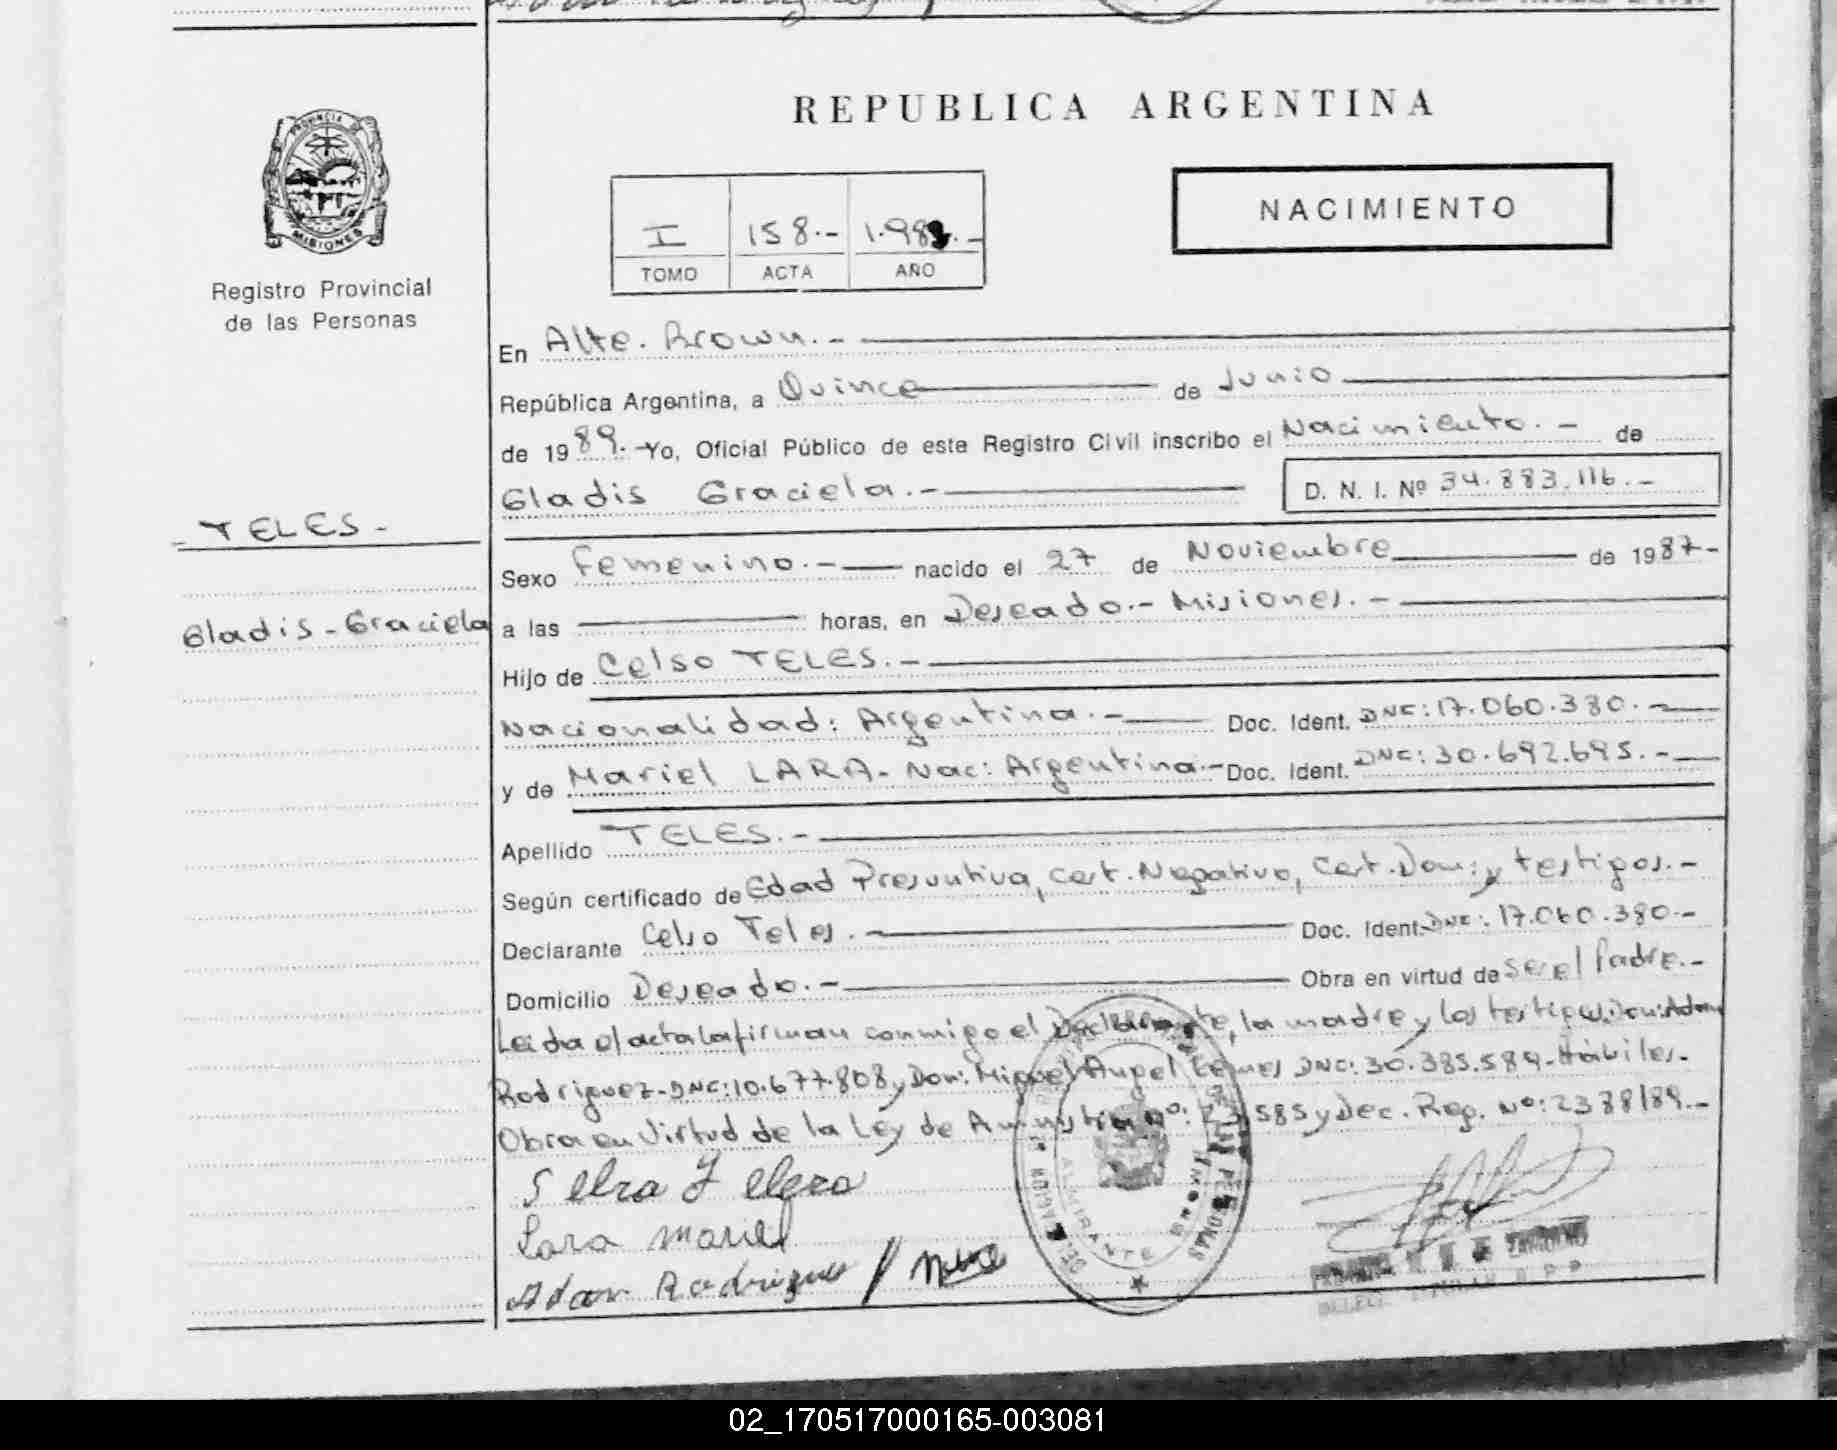 REPUBLICA ARGENTINA
PROVINCIA DE
MISIONES
Registro Provincial
de las Personas
NACIMIENTO
I 158.- 1.989.-
TOMO ACTA AÑO
En Alte. Brown.-
República Argentina, a Quince de Junio
de 1989.- Yo, Oficial Público de este Registro Civil inscribo el Nacimiento.- de
Gladis Graciela.- D. N. I. Nº 34.883.116.-
- TELES -
Gladis - Graciela
Sexo Femenino.- nacido el 27 de Noviembre de 1987-
a las horas, en Deseado.- Misiones.-
Hijo de Celso TELES.-
Nacionalidad: Argentina.- Doc. Ident. DNI: 17.060.380.-
y de Mariel LARA- Nac: Argentina.- Doc. Ident. DNI: 30.692.695.-
Apellido TELES.-
Según certificado de Edad Presuntiva, Cert. Negativo, Cert. Dom: y testigos.-
Declarante Celso Teles.- Doc. Ident. DNI: 17.060.380.-
Domicilio Deseado.- Obra en virtud de Ser el Padre.-
Leida el acta la firman conmigo el Declarante, la madre y los testigos Don: Adan
Rodriguez- DNI: 10.677.808 y Don: Miguel Angel DNI: 30.385.589- Hábiles-
Obra en Virtud de la Ley de Amnistia Nº: 585 y Dec. Reg. Nº: 2388/89.-
Lara Mariel
Adan Rodrigues
ALMIRANTE BROWN
02_170517000165-003081